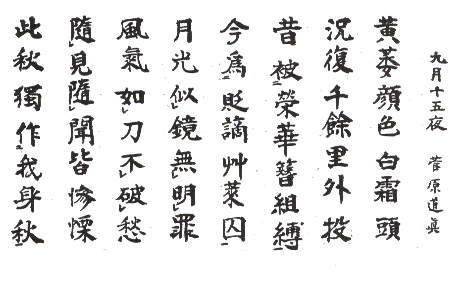 九月十五夜 菅原道眞
黃萎顔色白霜頭
況復千餘里外投
昔被榮華簪組縛
今爲貶謫艸萊囚
月光似鏡無明罪
風氣如刀不破愁
隨見隨聞皆慘慄
此秋獨作我身秋